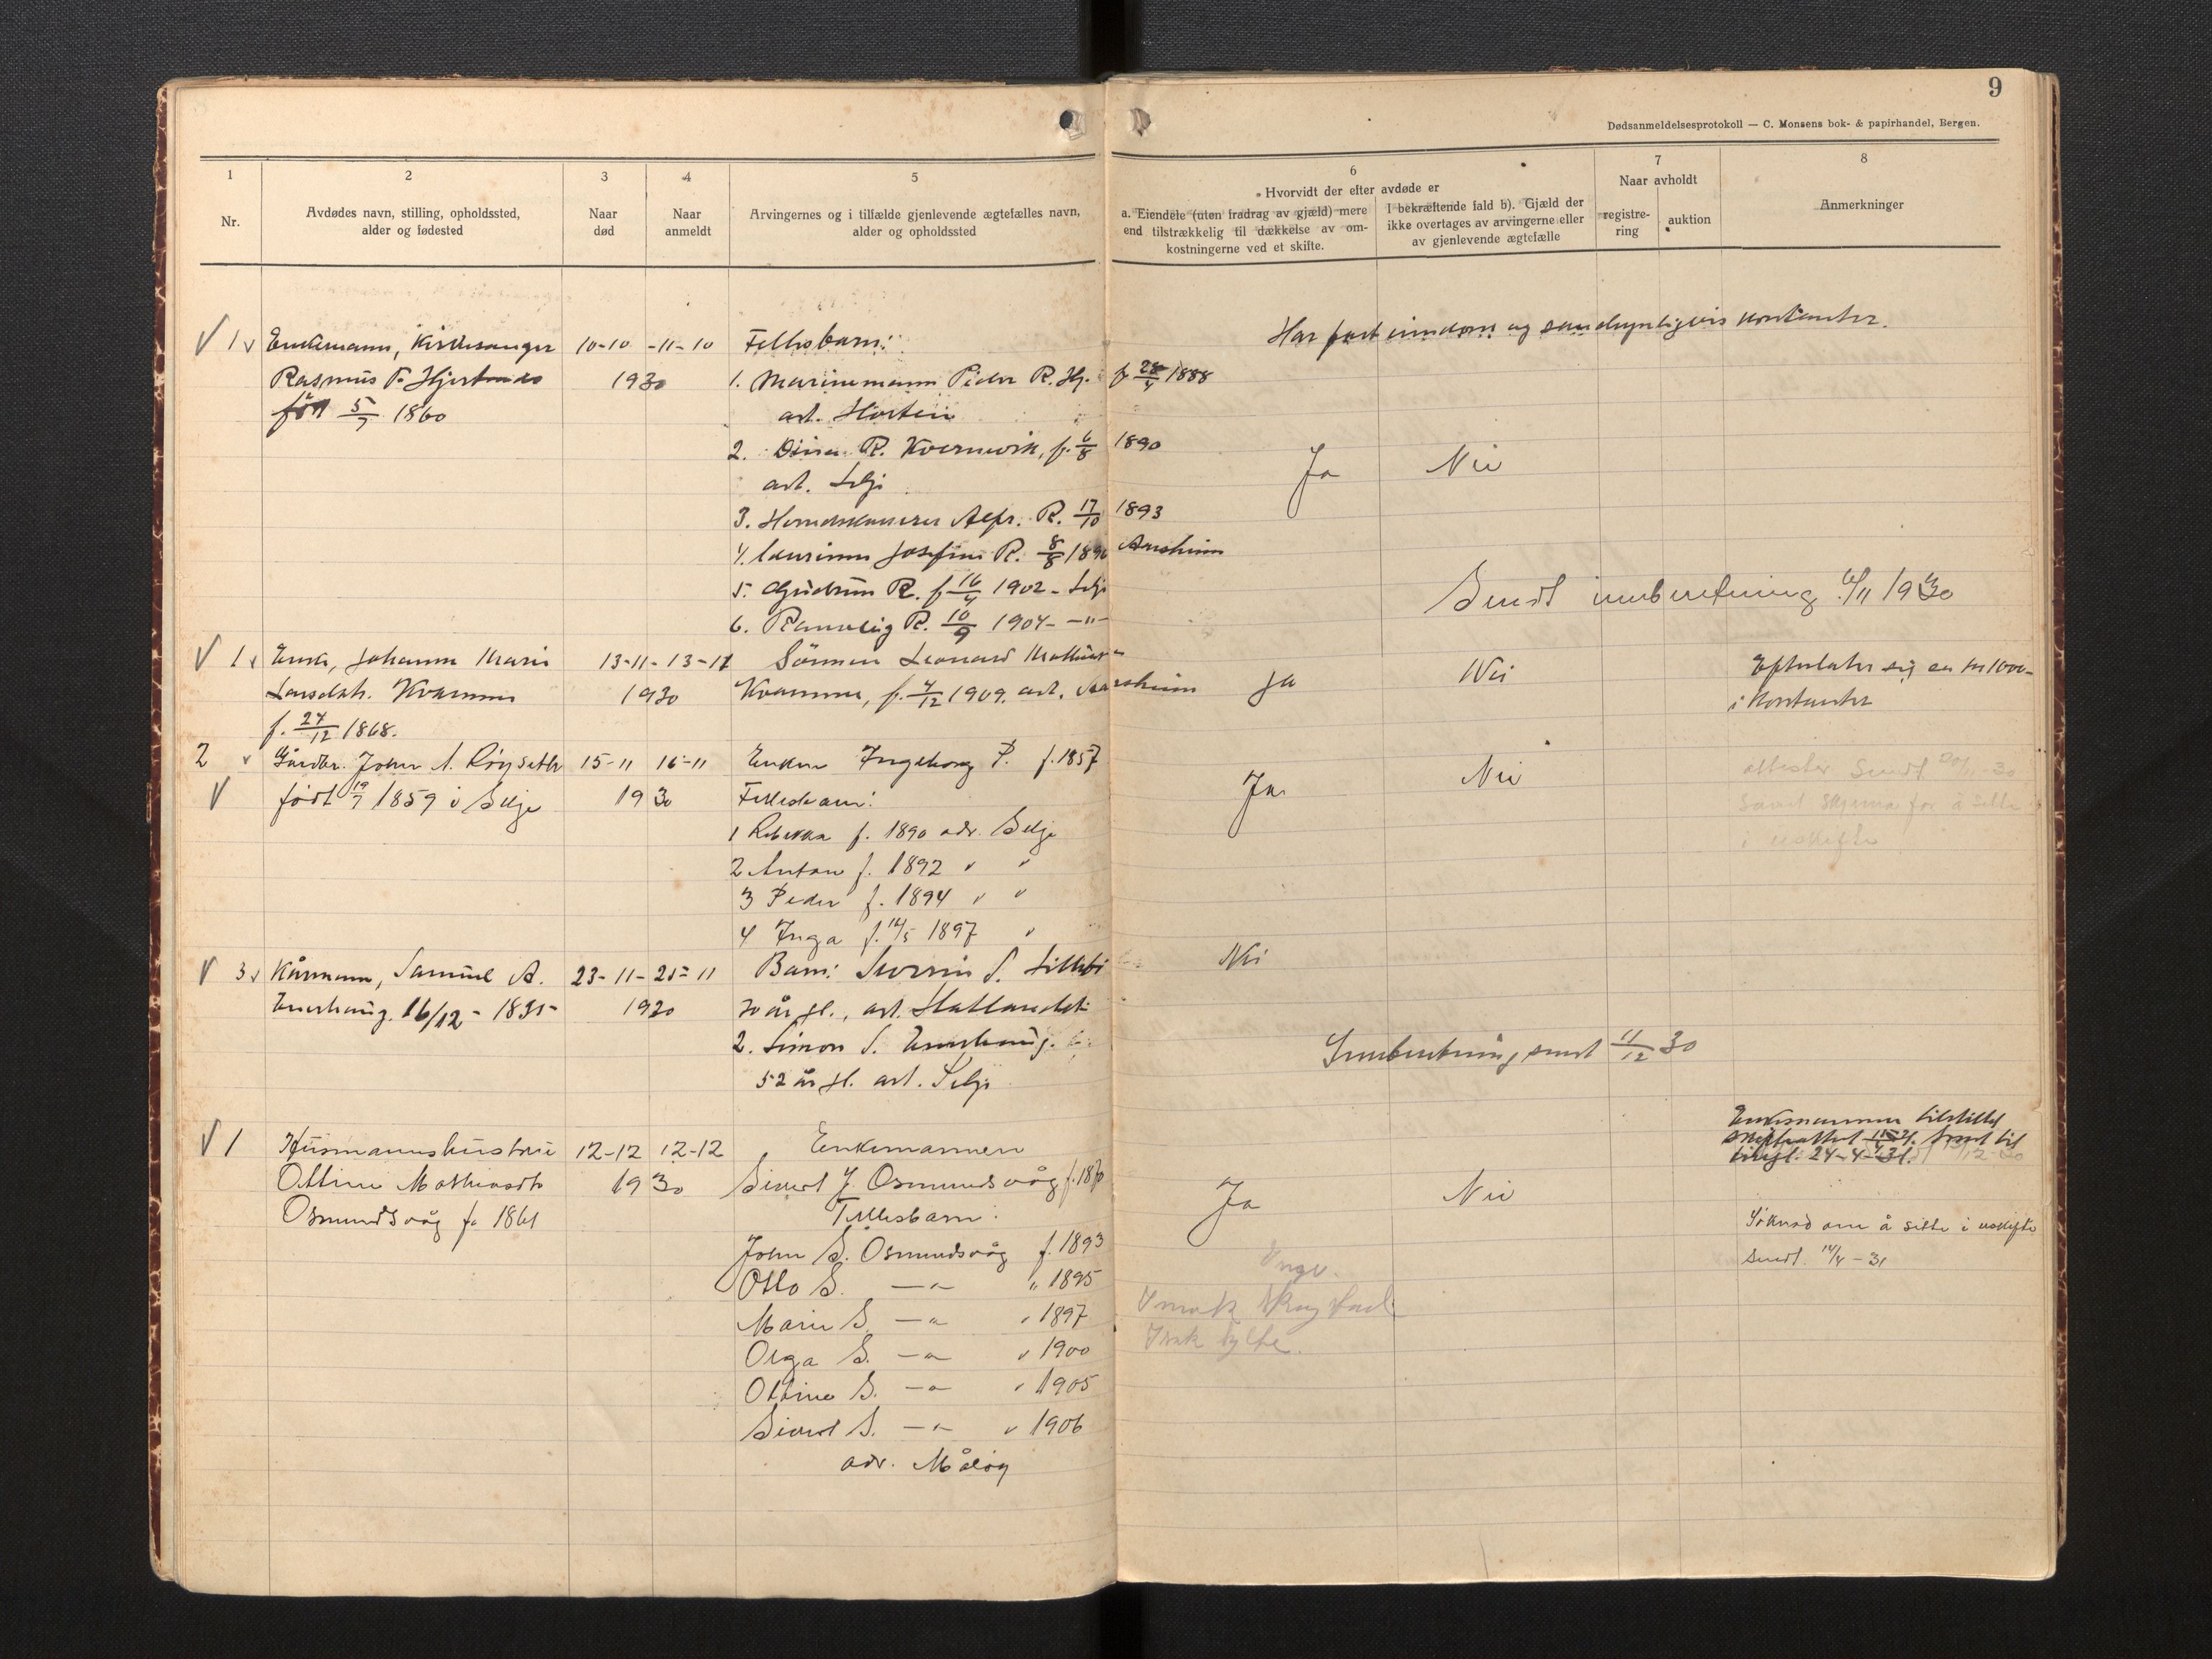 9
Dødsanmeldelsesprotokoll — C. Monsens bok- & papirhandel, Bergen.
1 2 3 4 5 6 7 8
Nr.
Avdødes navn, stilling, opholdssted,
alder og fødested
Naar
død
Naar
anmeldt
Arvingernes og i tilfælde gjenlevende ægtefælles navn,
alder og opholdssted
Hvorvidt der efter avdøde er
a. Eiendele (uten fradrag av gjæld) mere
end tilstrækkelig til dækkelse av om-
kostningerne ved et skifte.
I bekræftende fald b). Gjæld der
ikke overtages av arvingerne eller
av gjenlevende ægtefælle
Naar avholdt
registre-
ring
auktion
Anmerkninger
√ 1 √ Enkemann, Kirkesanger 10-10 -11-10 Fellesbarn: Har fast eiendom og sandsynligvis kontanter.
Rasmus 1930 1. Marinemann Peder R. Hj. f. 28/4 1888
født 5/7 1860 adr. Horten
2. R. Kvernevik, f. 6/8 1890
adr. Selje Ja Nei
3. Alfr. R. 17/10 1893
4. Josefine R. 8/8 Aarsheim
5. Gudrun R. f. 16/4 1902 - Selje Sendt innberetning 6/11 1930
6. R. 10/9 1904 - -"-
√ 1 √ Enke, Johanne Marie 13-11- 13-11 Sønnen Leonard
Larsdatr. Kvamme 1930 Kvamme, f. 4/12 1909. adr. Aarsheim Ja Nei Efterlater sig ca kr 1000-
i kontanter
f. 24/12 1868.
2 √ Gårdbr. John A. Røyseth 15-11 16-11 Enken Ingeborg P. f. 1857
√ født 19/7 1859 i Selje 1930 Fellesbarn: Ja Nei
attester sendt
samt skjema for å sitte
i uskifte
1 Rebekka f. 1890 adr. Selje
2 Anton f. 1892 " "
3 Peder f. 1894 " "
4 Inga f. 14/5 1897 "
√ 3 √ Kårmann, Samuel A. 23-11- 25-11 Barn: Severin S. Nei
16/12 - 1835 1930 70 år gl., adr.
2. Simon S.
Innberetning sendt 11/12 30
52 år gl. adr. Selje
√ 1 Husmannshustru 12-12 12-12 Enkemannen
Enkemannen tilstillet
skifteattest Sendt til
tingl. 24-4-31.
Ottine Mathiasdtr 1930 Sivert J. Osmundsvåg f. 1870 Ja Nei
Osmundsvåg f. 1861 Fellesbarn: Søknad om å sitte i uskifte
John S. Osmundsvåg f. 1893 sendt 14/4 - 31
Otto S. —"— " 1895
Marie S. —"— " 1897
Olga S. —"— " 1900
Ottine S. —"— " 1905
Sivert S. —"— " 1906
adr. Måløy